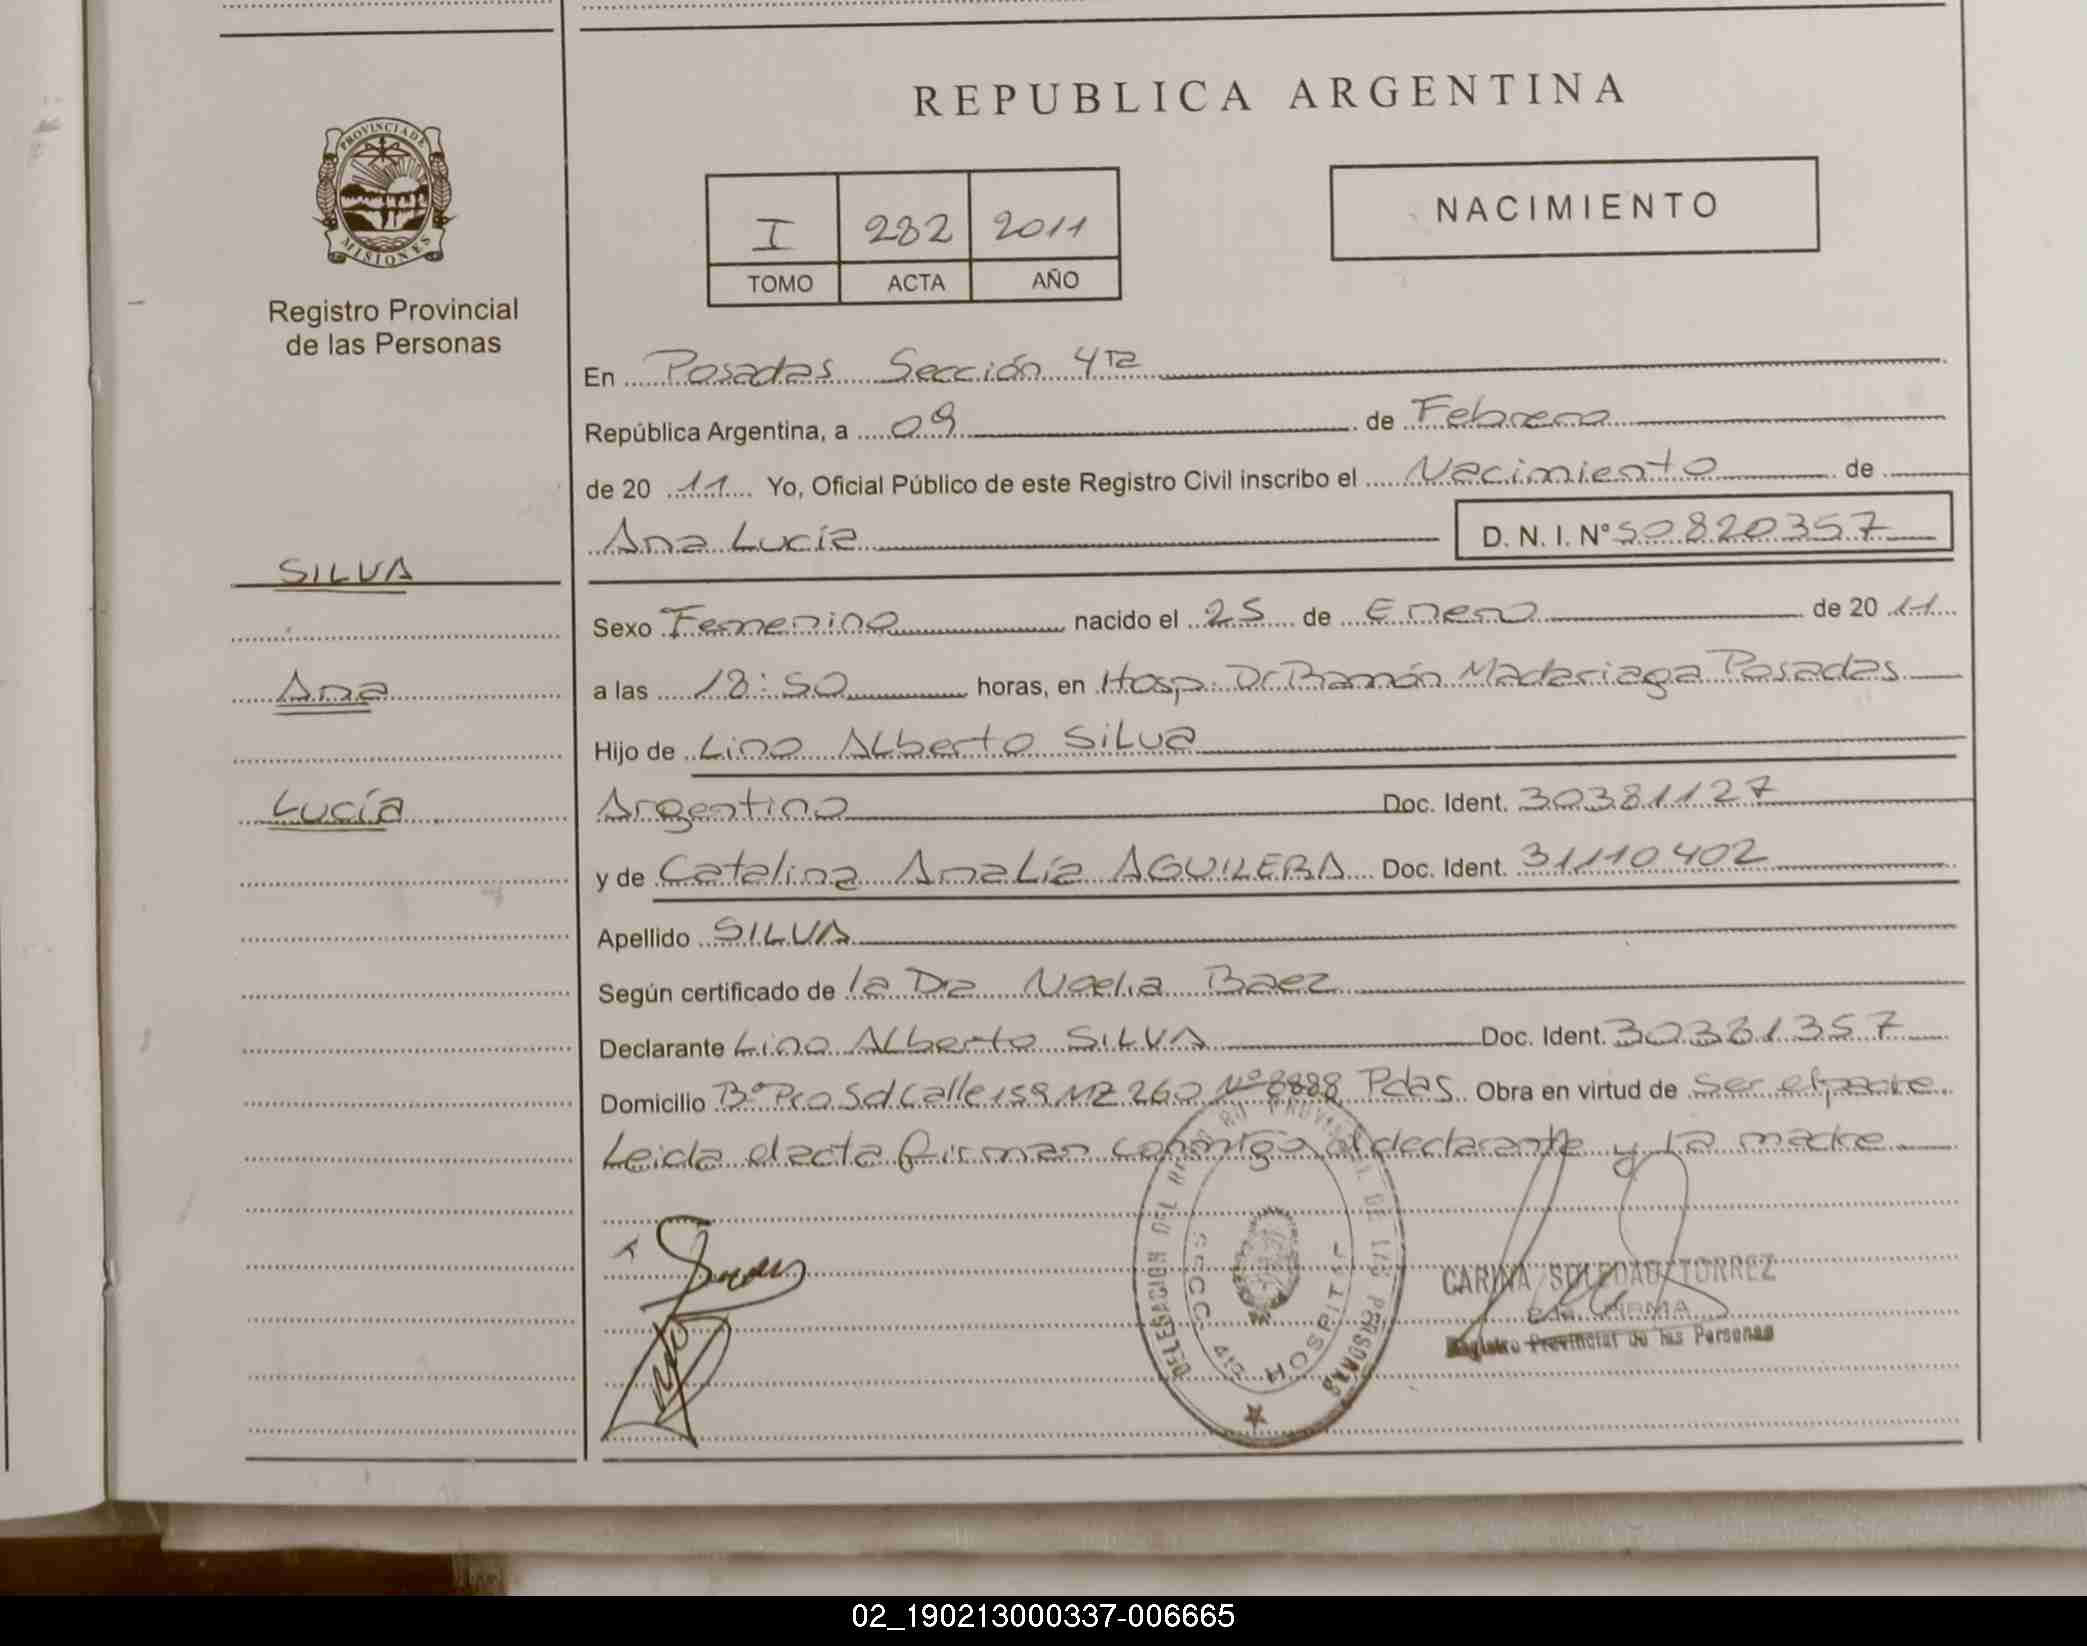 REPUBLICA ARGENTINA
PROVINCIA DE
MISIONES
Registro Provincial
de las Personas
I 282 2011
TOMO ACTA AÑO
NACIMIENTO
En Posadas Sección 4ta
República Argentina, a 09 de Febrero
de 20 11 Yo, Oficial Público de este Registro Civil inscribo el Nacimiento de
Ana Lucía D. N. I. Nº 50820357
SILVA
Ana
Lucía
Sexo Femenino nacido el 25 de Enero de 20 11
a las 18:50 horas, en Hosp. Dr Ramón Madariaga Posadas
Hijo de Lino Alberto Silva
Argentino Doc. Ident. 30381127
y de Catalina Analía AGUILERA Doc. Ident. 31110402
Apellido SILVA
Según certificado de la Dra Noelia Baez
Declarante Lino Alberto SILVA Doc. Ident. 30381357
Domicilio Bº Pro Sol Calle 159 MZ 260 Nº 8888 Pdas Obra en virtud de ser el padre
Leida el acta firman conmigo el declarante y la madre
DELEGACION DEL REGISTRO PROVINCIAL DE LAS PERSONAS
SECC. 4ta HOSPITAL
CARINA SOLEDAD TORREZ
FIRMA
Registro Provincial de las Personas
02_190213000337-006665